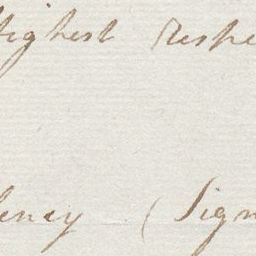 Highest Respe
lency (Sign